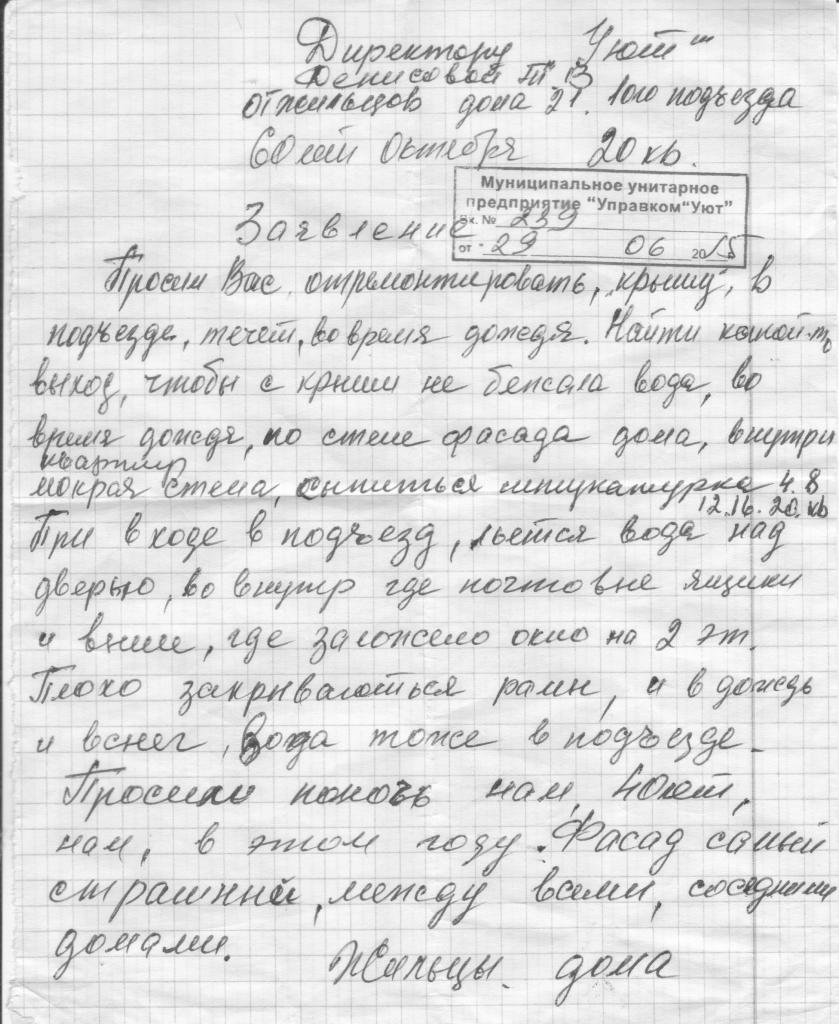 Директору "Уют"
Денисовой Т. В
от жильцов дома 21. 1ого подъезда
60 лет Октября 20 кв.
Муниципальное унитарное
предприятие "Управком"Уют"
Вх. № 239
от "29 06 2015
Заявление
Просим Вас, отремонтировать, крышу, в
подъезде, течет, во время дождя. Найти какой-то
выход, чтобы с крыши не бежала вода, во
время дождя, по стене фасада дома, внутри
квартир
мокрая стена, сыпиться штукатурка 4. 8
12. 16. 20. кв
При входе в подъезд, льется вода над
дверью, во внутр где почтовые ящики
и выше, где заложено окно на 2 эт.
Плохо закрываються рамы, и в дождь
и вснег, вода тоже в подъезде.
Просим помочь нам,
нам, в этом году. Фасад самый
страшный, между всеми, соседними
домами.
Жильцы дома